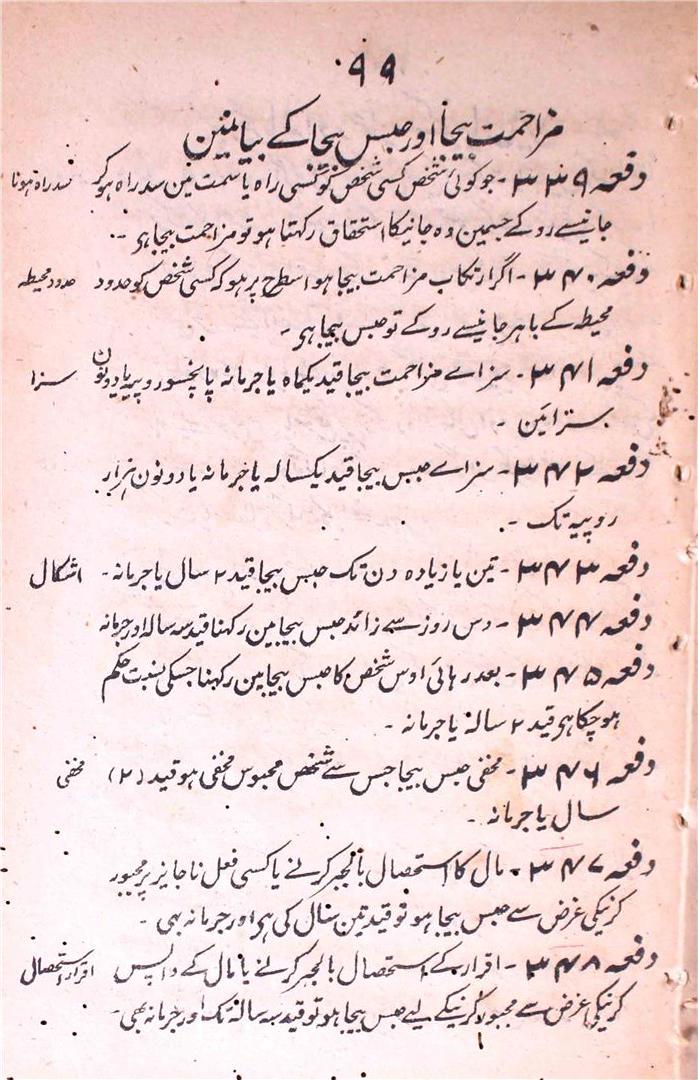 ۹۹
مزاحمت بیجا اور حبس بیجا کے بیانمین
دفعہ ۳۳۹ - جو کوئی شخص کسی شخص کو کسی راہ یا سمت مین سدراہ ہو کر سدراہ ہونا
جانیسے روکے جسمین وہ جانیکا استحقاق رکہتا ہو تو مزاحمت بیجا ہی -
دفعہ ۳۴۰ - اگر ارتکاب مزاحمت بیجا ہو اسطح پر ہو کہ کسی شخص کو حدود حدود محیطہ
محیطہ کے باہر جانیسے روکے تو حبس بیجا ہی -
دفعہ ۳۴۱ - سزاے مزاحمت بیجا قید یکماہ یا جرمانہ پانچسو روپیہ یا دونون سزا
سزائین -
دفعہ ۳۴۲ - سزاے حبس بیجا قید یکسالہ یا جرمانہ یا دونون ہزار
روپیہ تک -
دفعہ ۳۴۳ - تین یا زیادہ دن تک حبس بیجا قید ۲ سال یا جرمانہ - اشکال
دفعہ ۳۴۴ - دس روز سے زائد حبس بیجا مین رکہنا قید سہ سالہ اور جرمانہ
دفعہ ۳۴۵ - بعد رہائی اوس شخص کا حبس بیجا مین رکہنا جسکی نسبت حکم
ہوچکا ہی قید ۲ سالہ یا جرمانہ -
دفعہ ۳۴۶ - مخفی حبس بیجا جس سے شخص محبوس مخفی ہو قید (۲) مخفی
سال یا جرمانہ -
دفعہ ۳۴۷ - مال کا استحصال بالجبر کرنے یا کسی فعل ناجایز پر مجبور
کرنیکی غرض سے حبس بیجا ہو تو قید تین سال کی ہی اور جرمانہ بہی -
دفعہ ۳۴۸ - اقرار کے استحصال بالجبر کرنے یا مال کے واپس اقرار استحصالی
کرنیکی غرض سے مجبور کرنیکے لیے حبس بیجا ہو تو قید سہ سالہ تک اور جرمانہ بھی -